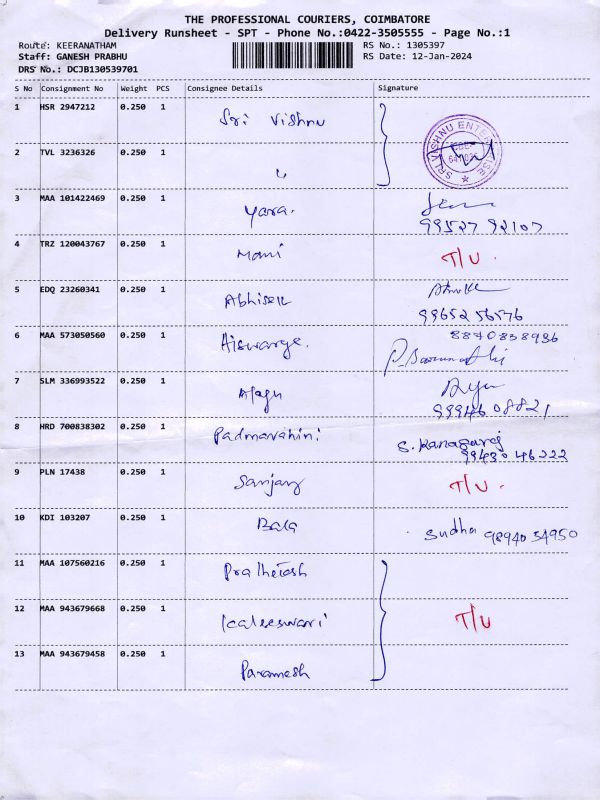 THE PROFESSIONAL COURIERS, COIMBATORE
Delivery Runsheet - SPT - Phone No.:0422-3505555 - Page No.:1
Route: KEERANATHAM RS No.: 1305397
Staff: GANESH PRABHU RS Date: 12-Jan-2024
DRS No.: DCJB130539701
S No Consignment No Weight PCS Consignee Details Signature
1 HSR 2947212 0.250 1 Sri Vishnu
SRI VISHNU ENTERPRISE
2 TVL 3236326 0.250 1 "
3 MAA 101422469 0.250 1 Yara.
99527 92107
4 TRZ 120043767 0.250 1 Mani T/U.
5 EDQ 23260341 0.250 1 Abhisek
99652 56576
6 MAA 573050560 0.250 1 Aiswarya. 8870838936
7 SLM 336993522 0.250 1 Alagu
99946 08821
8 HRD 700838302 0.250 1 Padmavahini S. Kanagaraj
99430 46222
9 PLN 17438 0.250 1 Sanjay T/U.
10 KDI 103207 0.250 1 Bala Sudha 98940 54950
11 MAA 107560216 0.250 1
12 MAA 943679668 0.250 1 Kaleeswari T/U
13 MAA 943679458 0.250 1 Paramesh